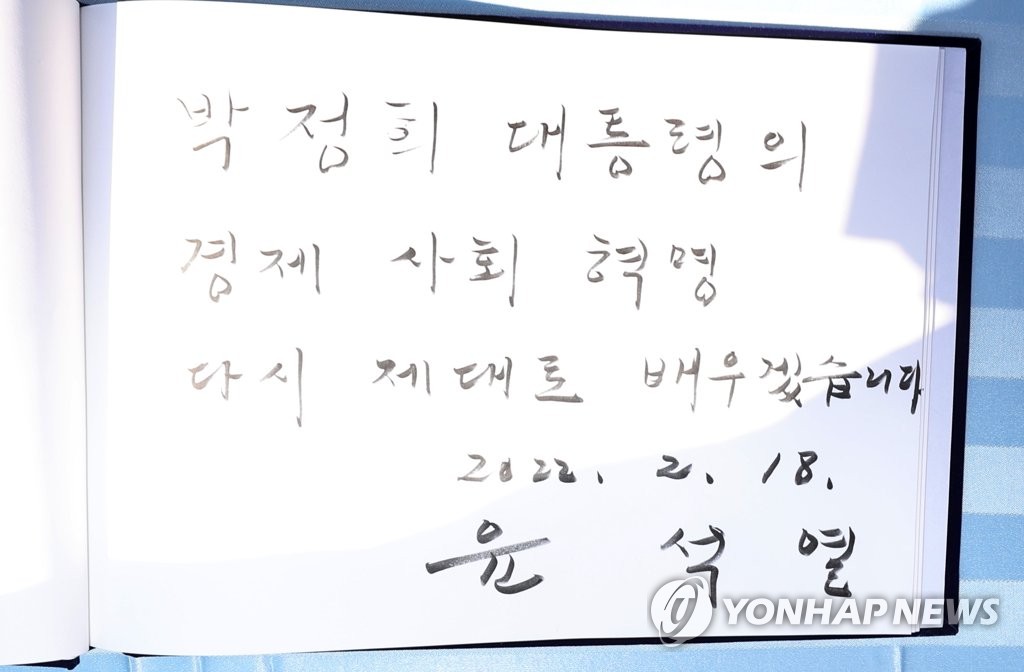 박정희 대통령의
경제 사회 혁명
다시 제대로 배우겠습니다
2022. 2. 18.
윤 석 열
YONHAP NEWS